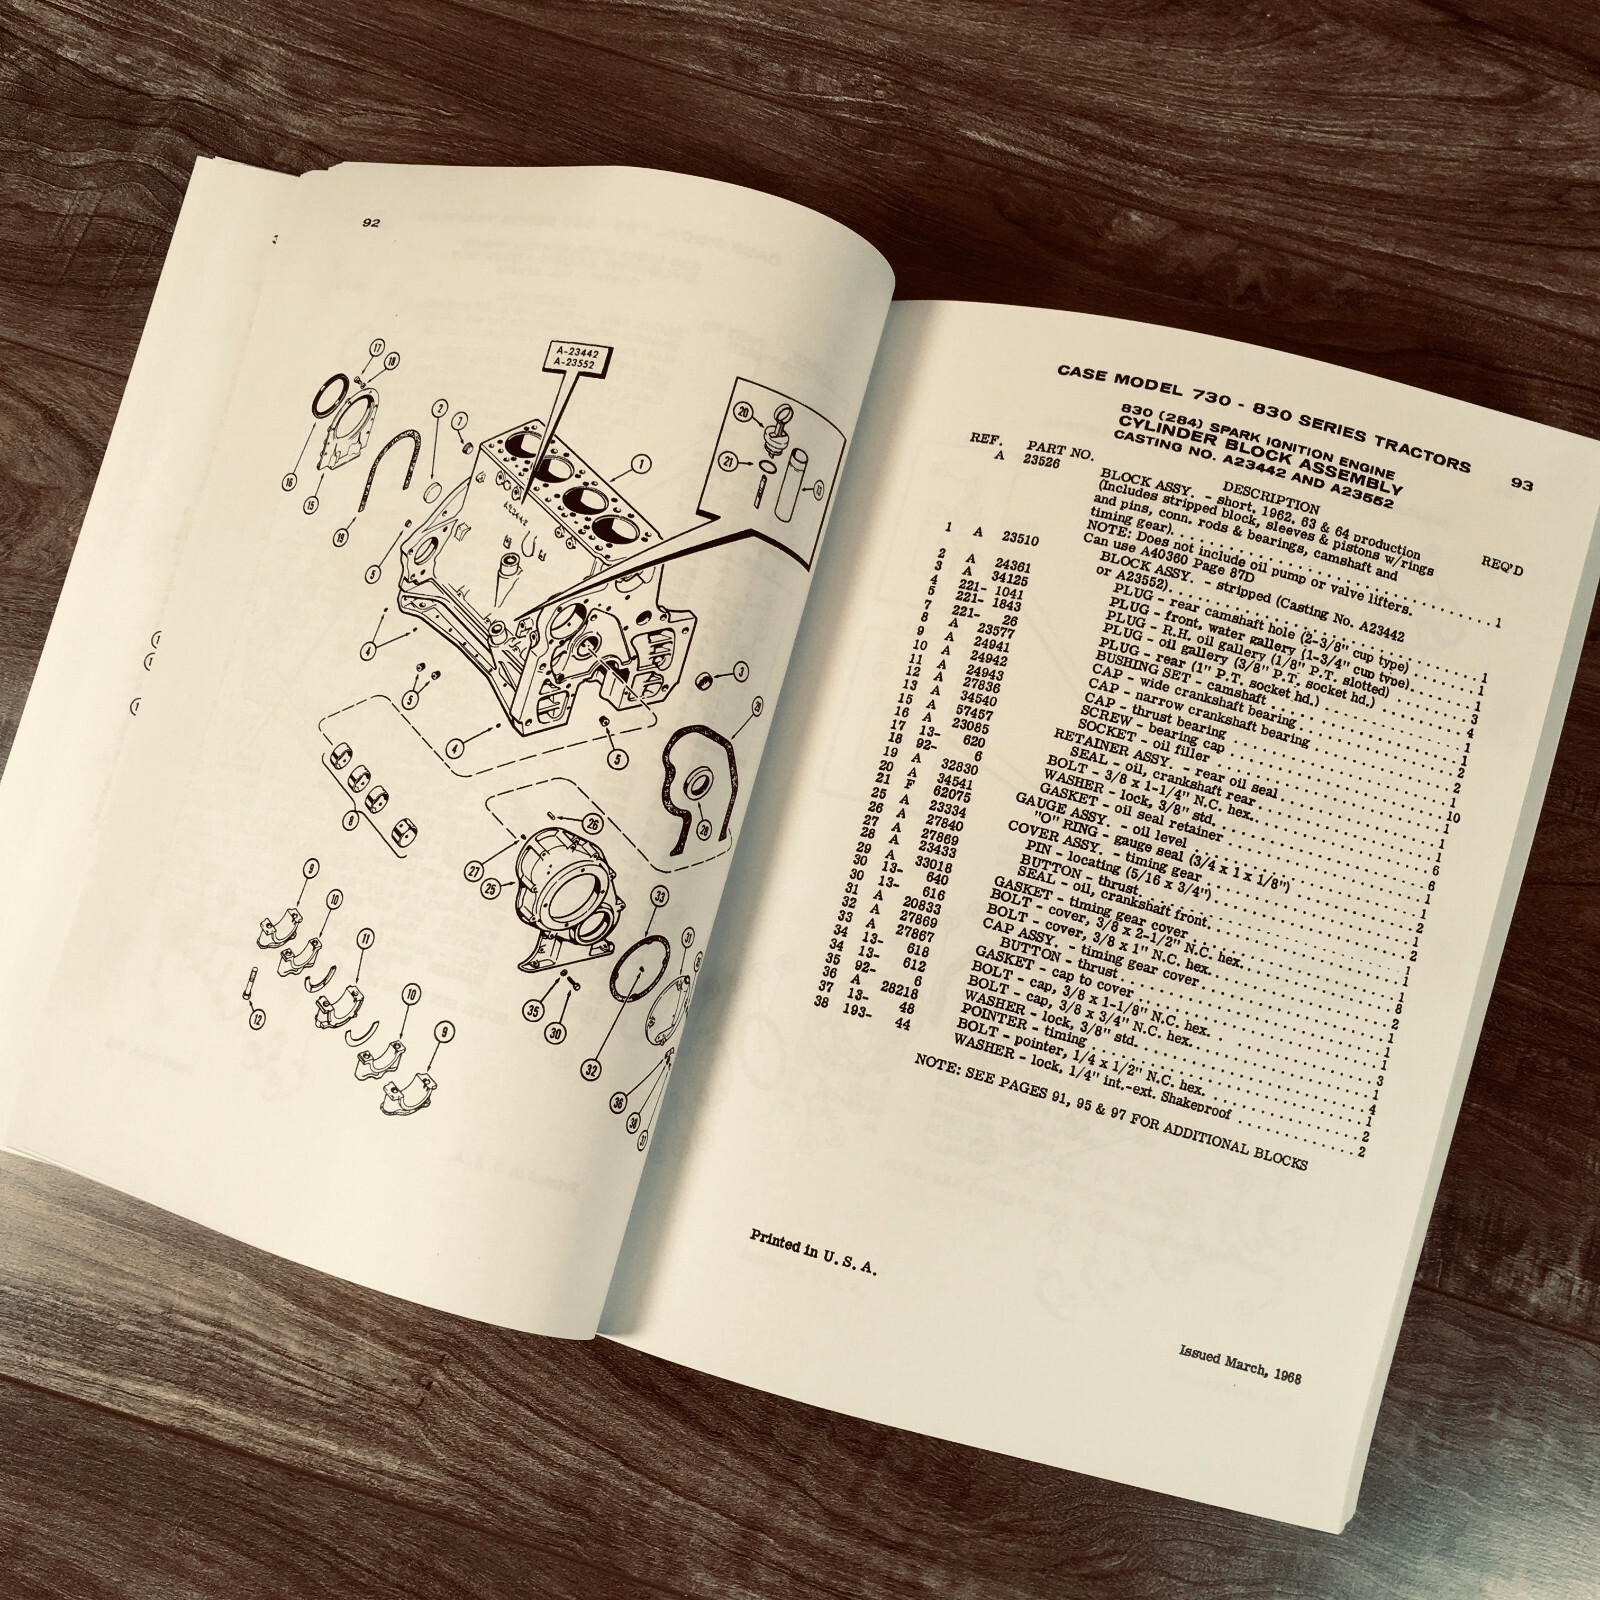 92
17
18
A-23442
A-23552
2
7
1
20
21
13
16
15
19
A23442
5
4
5
3
4
5
29
28
8
26
27
25
9
10
11
10
9
12
33
31
35
30
32
36
38
37
93
CASE MODEL 730 - 830 SERIES TRACTORS
830 (284) SPARK IGNITION ENGINE
CYLINDER BLOCK ASSEMBLY
CASTING NO. A23442 AND A23552
REF. PART NO. DESCRIPTION REQ'D
A 23526 BLOCK ASSY. - short, 1962, 63 & 64 production
(Includes stripped block, sleeves & pistons w/rings
and pins, conn. rods & bearings, camshaft and
timing gear). 1
NOTE: Does not include oil pump or valve lifters.
Can use A40360 Page 87D
1 A 23510 BLOCK ASSY. - stripped (Casting No. A23442
or A23552) 1
2 A 24361 PLUG - rear camshaft hole (2-3/8" cup type) 1
3 A 34125 PLUG - front, water gallery (1-3/4" cup type) 1
4 221- 1041 PLUG - R.H. oil gallery (1/8" P.T. slotted) 3
5 221- 1843 PLUG - oil gallery (3/8" P.T. socket hd.) 4
7 221- 26 PLUG - rear (1" P.T. socket hd.) 1
8 A 23577 BUSHING SET - camshaft 1
9 A 24941 CAP - wide crankshaft bearing 2
10 A 24942 CAP - narrow crankshaft bearing 2
11 A 24943 CAP - thrust bearing 1
12 A 27636 SCREW - bearing cap 10
13 A 34540 SOCKET - oil filler 1
15 A 57457 RETAINER ASSY. - rear oil seal 1
16 A 23085 SEAL - oil, crankshaft rear 1
17 13- 620 BOLT - 3/8 x 1-1/4" N.C. hex. 6
18 92- 6 WASHER - lock, 3/8" std. 6
19 A 32830 GASKET - oil seal retainer 1
20 A 34541 GAUGE ASSY. - oil level 1
21 F 62075 "O" RING - gauge seal (3/4 x 1 x 1/8") 1
25 A 23334 COVER ASSY. - timing gear 1
26 A 27840 PIN - locating (5/16 x 3/4") 2
27 A 27869 BUTTON - thrust 1
28 A 23433 SEAL - oil, crankshaft front 1
29 A 33018 GASKET - timing gear cover 1
30 13- 640 BOLT - cover, 3/8 x 2-1/2" N.C. hex. 8
30 13- 616 BOLT - cover, 3/8 x 1" N.C. hex. 2
31 A 20833 CAP ASSY. - timing gear cover 1
32 A 27869 BUTTON - thrust 1
33 A 27867 GASKET - cap to cover 1
34 13- 618 BOLT - cap, 3/8 x 1-1/8" N.C. hex. 3
34 13- 612 BOLT - cap, 3/8 x 3/4" N.C. hex. 1
35 92- 6 WASHER - lock, 3/8" std. 4
36 A 28218 POINTER - timing 1
37 13- 48 BOLT - pointer, 1/4 x 1/2" N.C. hex. 2
38 193- 44 WASHER - lock, 1/4" int.-ext. Shakeproof 2
NOTE: SEE PAGES 91, 95 & 97 FOR ADDITIONAL BLOCKS
Printed in U. S. A.
Issued March, 1968